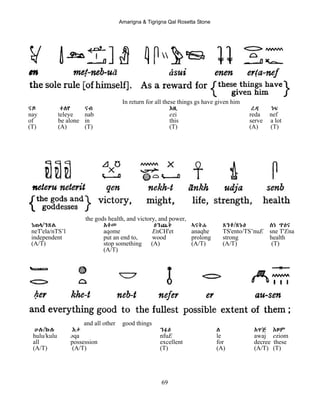 Amarigna & Tigrigna Qal Rosetta Stone
en mef-neb-uā àsui enen er(a-nef
the sole rule [of himself]. As a reward for {these things have} {given him}
In return for all these things gs have given him
ናይ ተለየ ናብ እዚ ረዳ ነፍ
nay teleye nab ezi reda nef
of be alone in this serve a lot
(T) (A) (T) (T) (A) (T)
neteru neterit qen nekh-t ānkh udja senb
{the gods and} {goddesses} victory, might, life, strength, health
the gods health, and victory, and power,
independent put an end to, wood prolong strong health
(A/T) stop something (A) (A/T) (A/T) (T)
(A/T)
ḥer khe-t neb-t nefer er au-sen
and everything good to the fullest possible extent of them ;
and all other good things
ሁሉ/ኩሉ እቃ ንፉዕ ለ አዋጅ እዞም
hulu/kulu əqa nfuE le awaj eziom
all possession excellent for decree these
(A/T) (A/T) (T) (A) (A/T) (T)
69